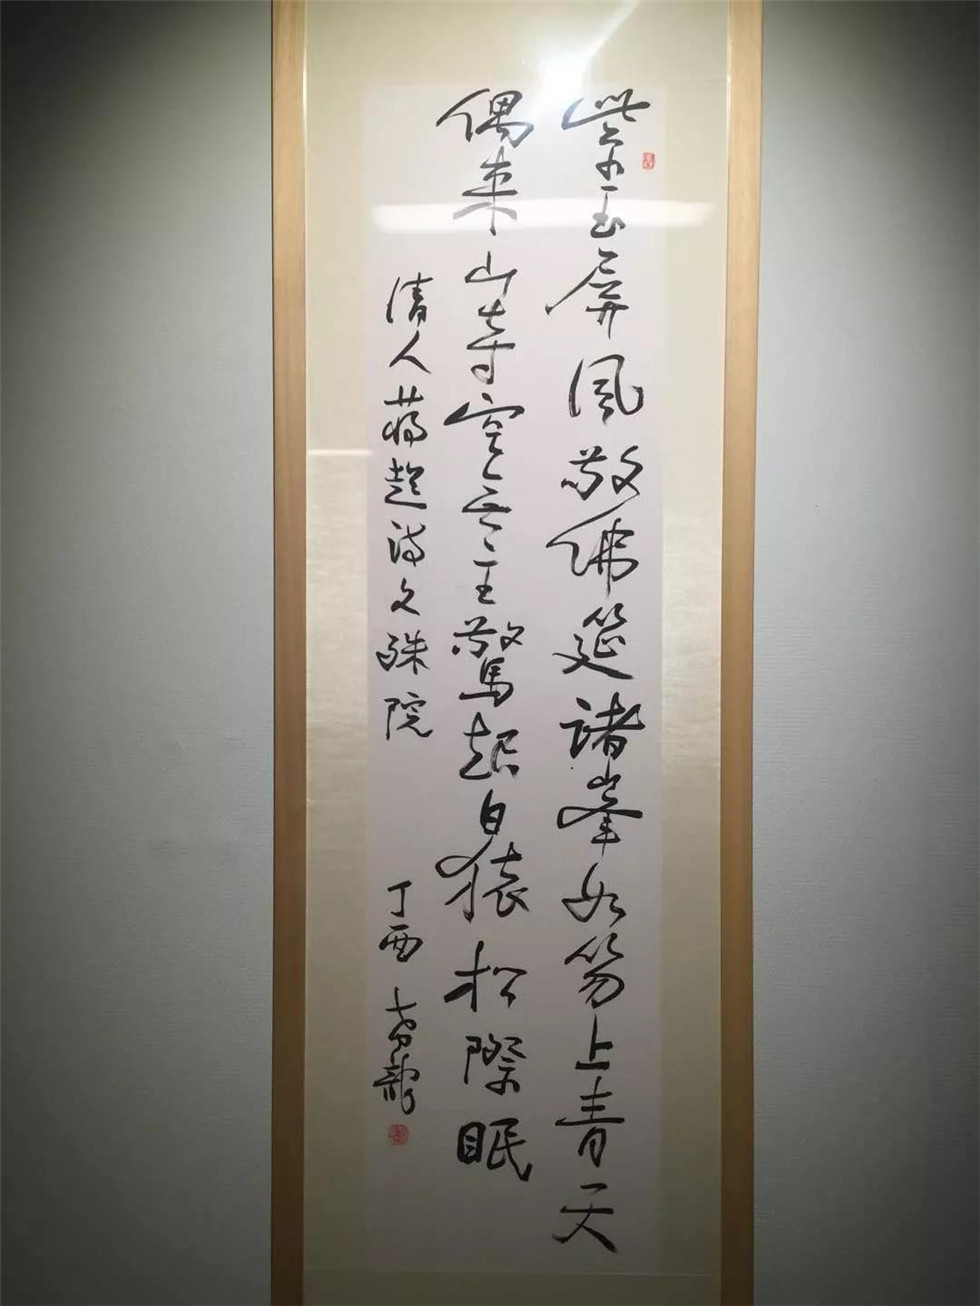 紫玉屏风敬佛筵诸峯如笏上青天
偶来山寺空无主惊起白猿松际眠
清人蒋超诗文殊院
丁酉 龙